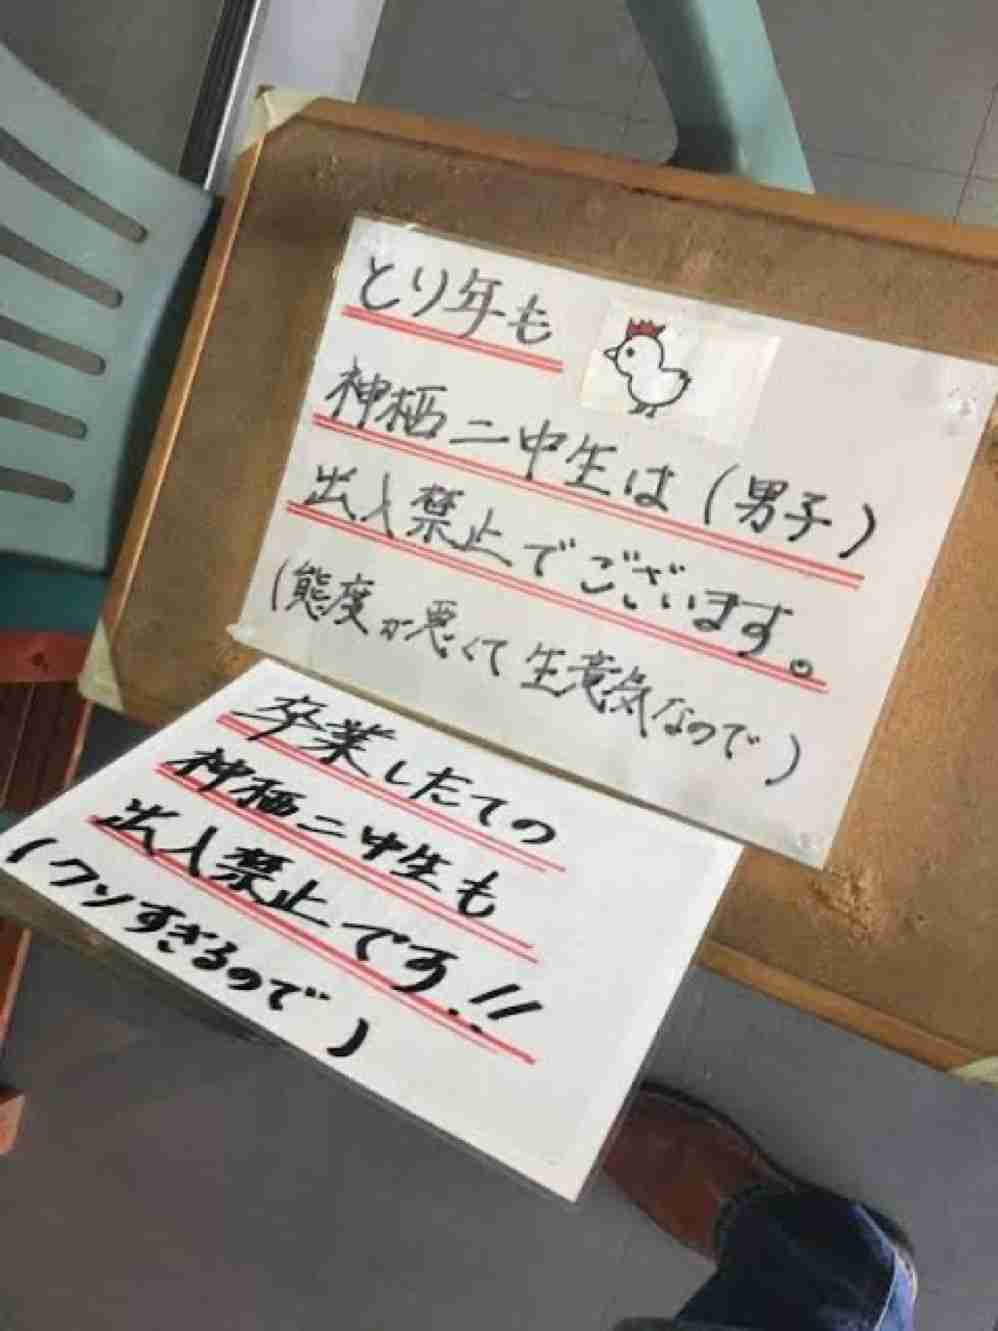 とり年も
神栖二中生は(男子)
出入禁止でございます。
(態度が悪くて生意気なので)
卒業したての
神栖二中生も
出入禁止です!!
(クソすぎるので)